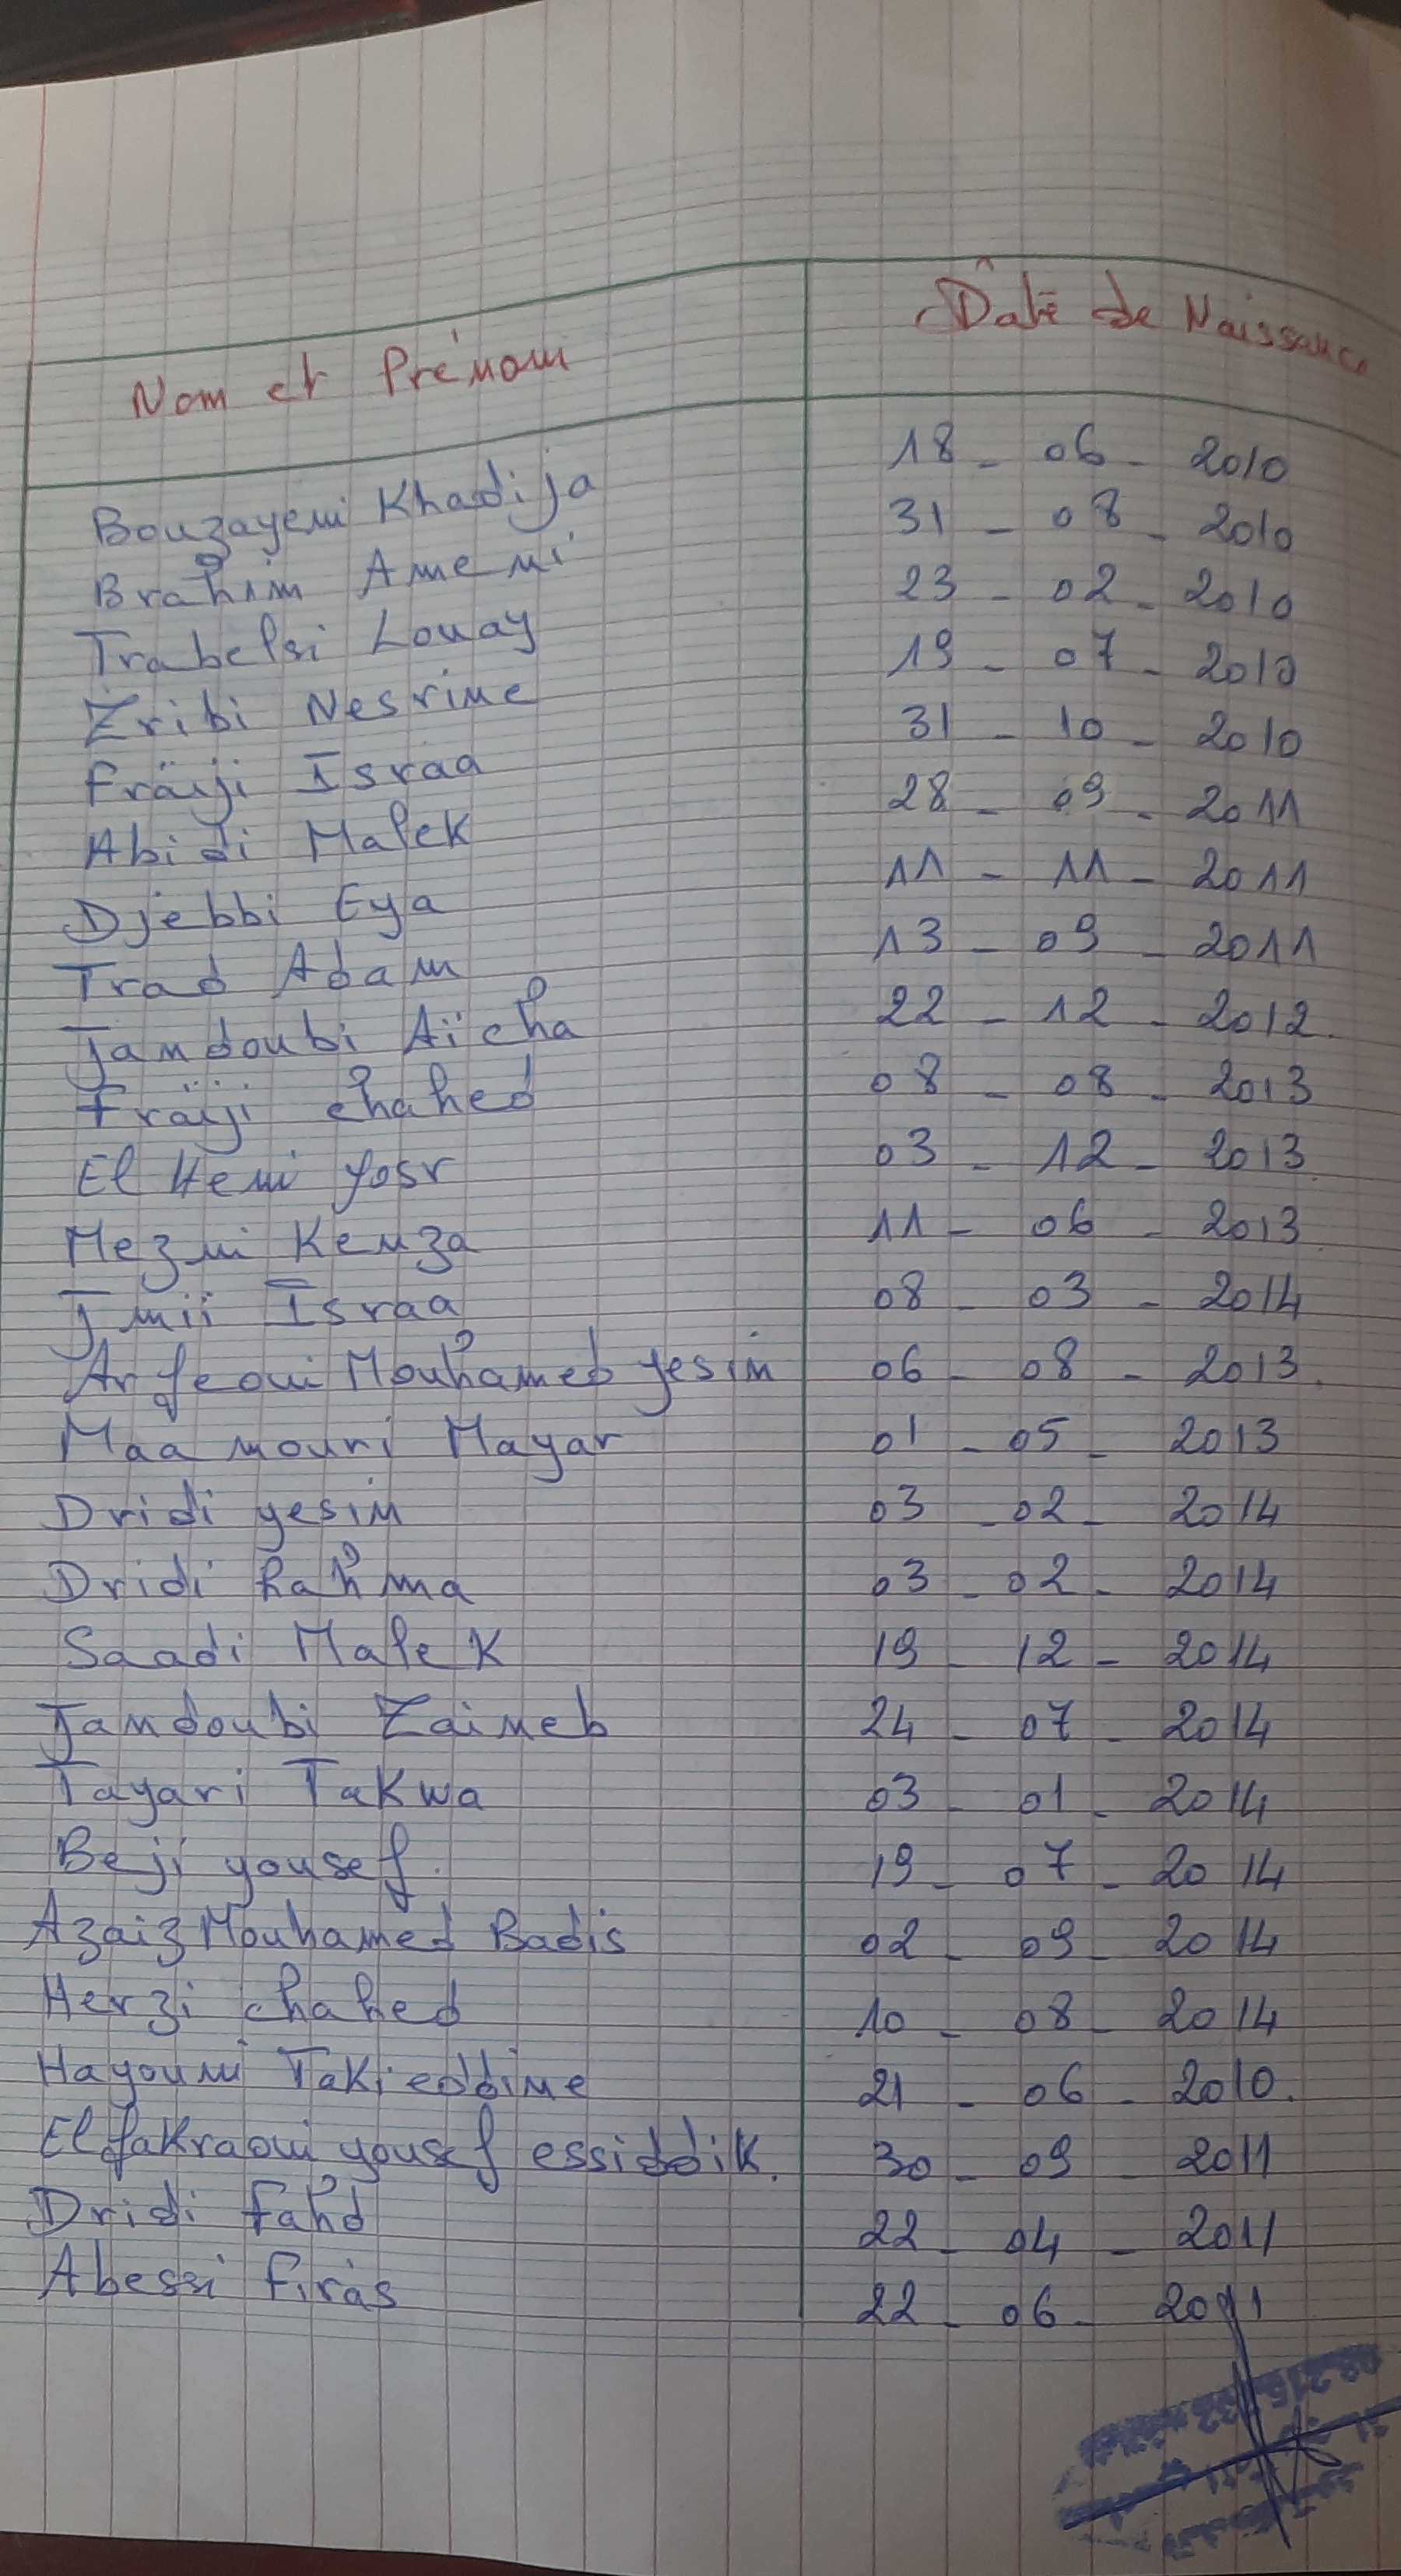 Nom et Prénom Date de Naissance
Bouzayeni Khadija 18 - 06 - 2010
Brahim Ameni 31 - 08 - 2010
Trabelsi Louay 23 - 02 - 2010
Zribi Nesrine 19 - 07 - 2010
Fraïji Israa 31 - 10 - 2010
Abidi Malek 28 - 09 - 2011
Djebbi Eya 11 - 11 - 2011
Trad Adam 13 - 09 - 2011
Jandoubi Aïcha 22 - 12 - 2012
Fraïji chahed 08 - 08 - 2013
El Heni yosr 03 - 12 - 2013
Mezni Kenza 11 - 06 - 2013
Jmii Israa 08 - 03 - 2014
Arfeoui Mouhamed yesin 06 - 08 - 2013
Maamouri Mayar 01 - 05 - 2013
Dridi yesin 03 - 02 - 2014
Dridi Rahma 03 - 02 - 2014
Saadi Malek 19 - 12 - 2014
Jandoubi Zaineb 24 - 07 - 2014
Tayari Takwa 03 - 01 - 2014
Beji yousef 19 - 07 - 2014
Azaiz Mouhamed Badis 02 - 09 - 2014
Herzi chahed 10 - 08 - 2014
Hayouni Takieddine 21 - 06 - 2010
El fakraoui yousef essiddik 30 - 09 - 2011
Dridi Fahd 22 - 04 - 2011
Abessi Firas 22 - 06 - 2011